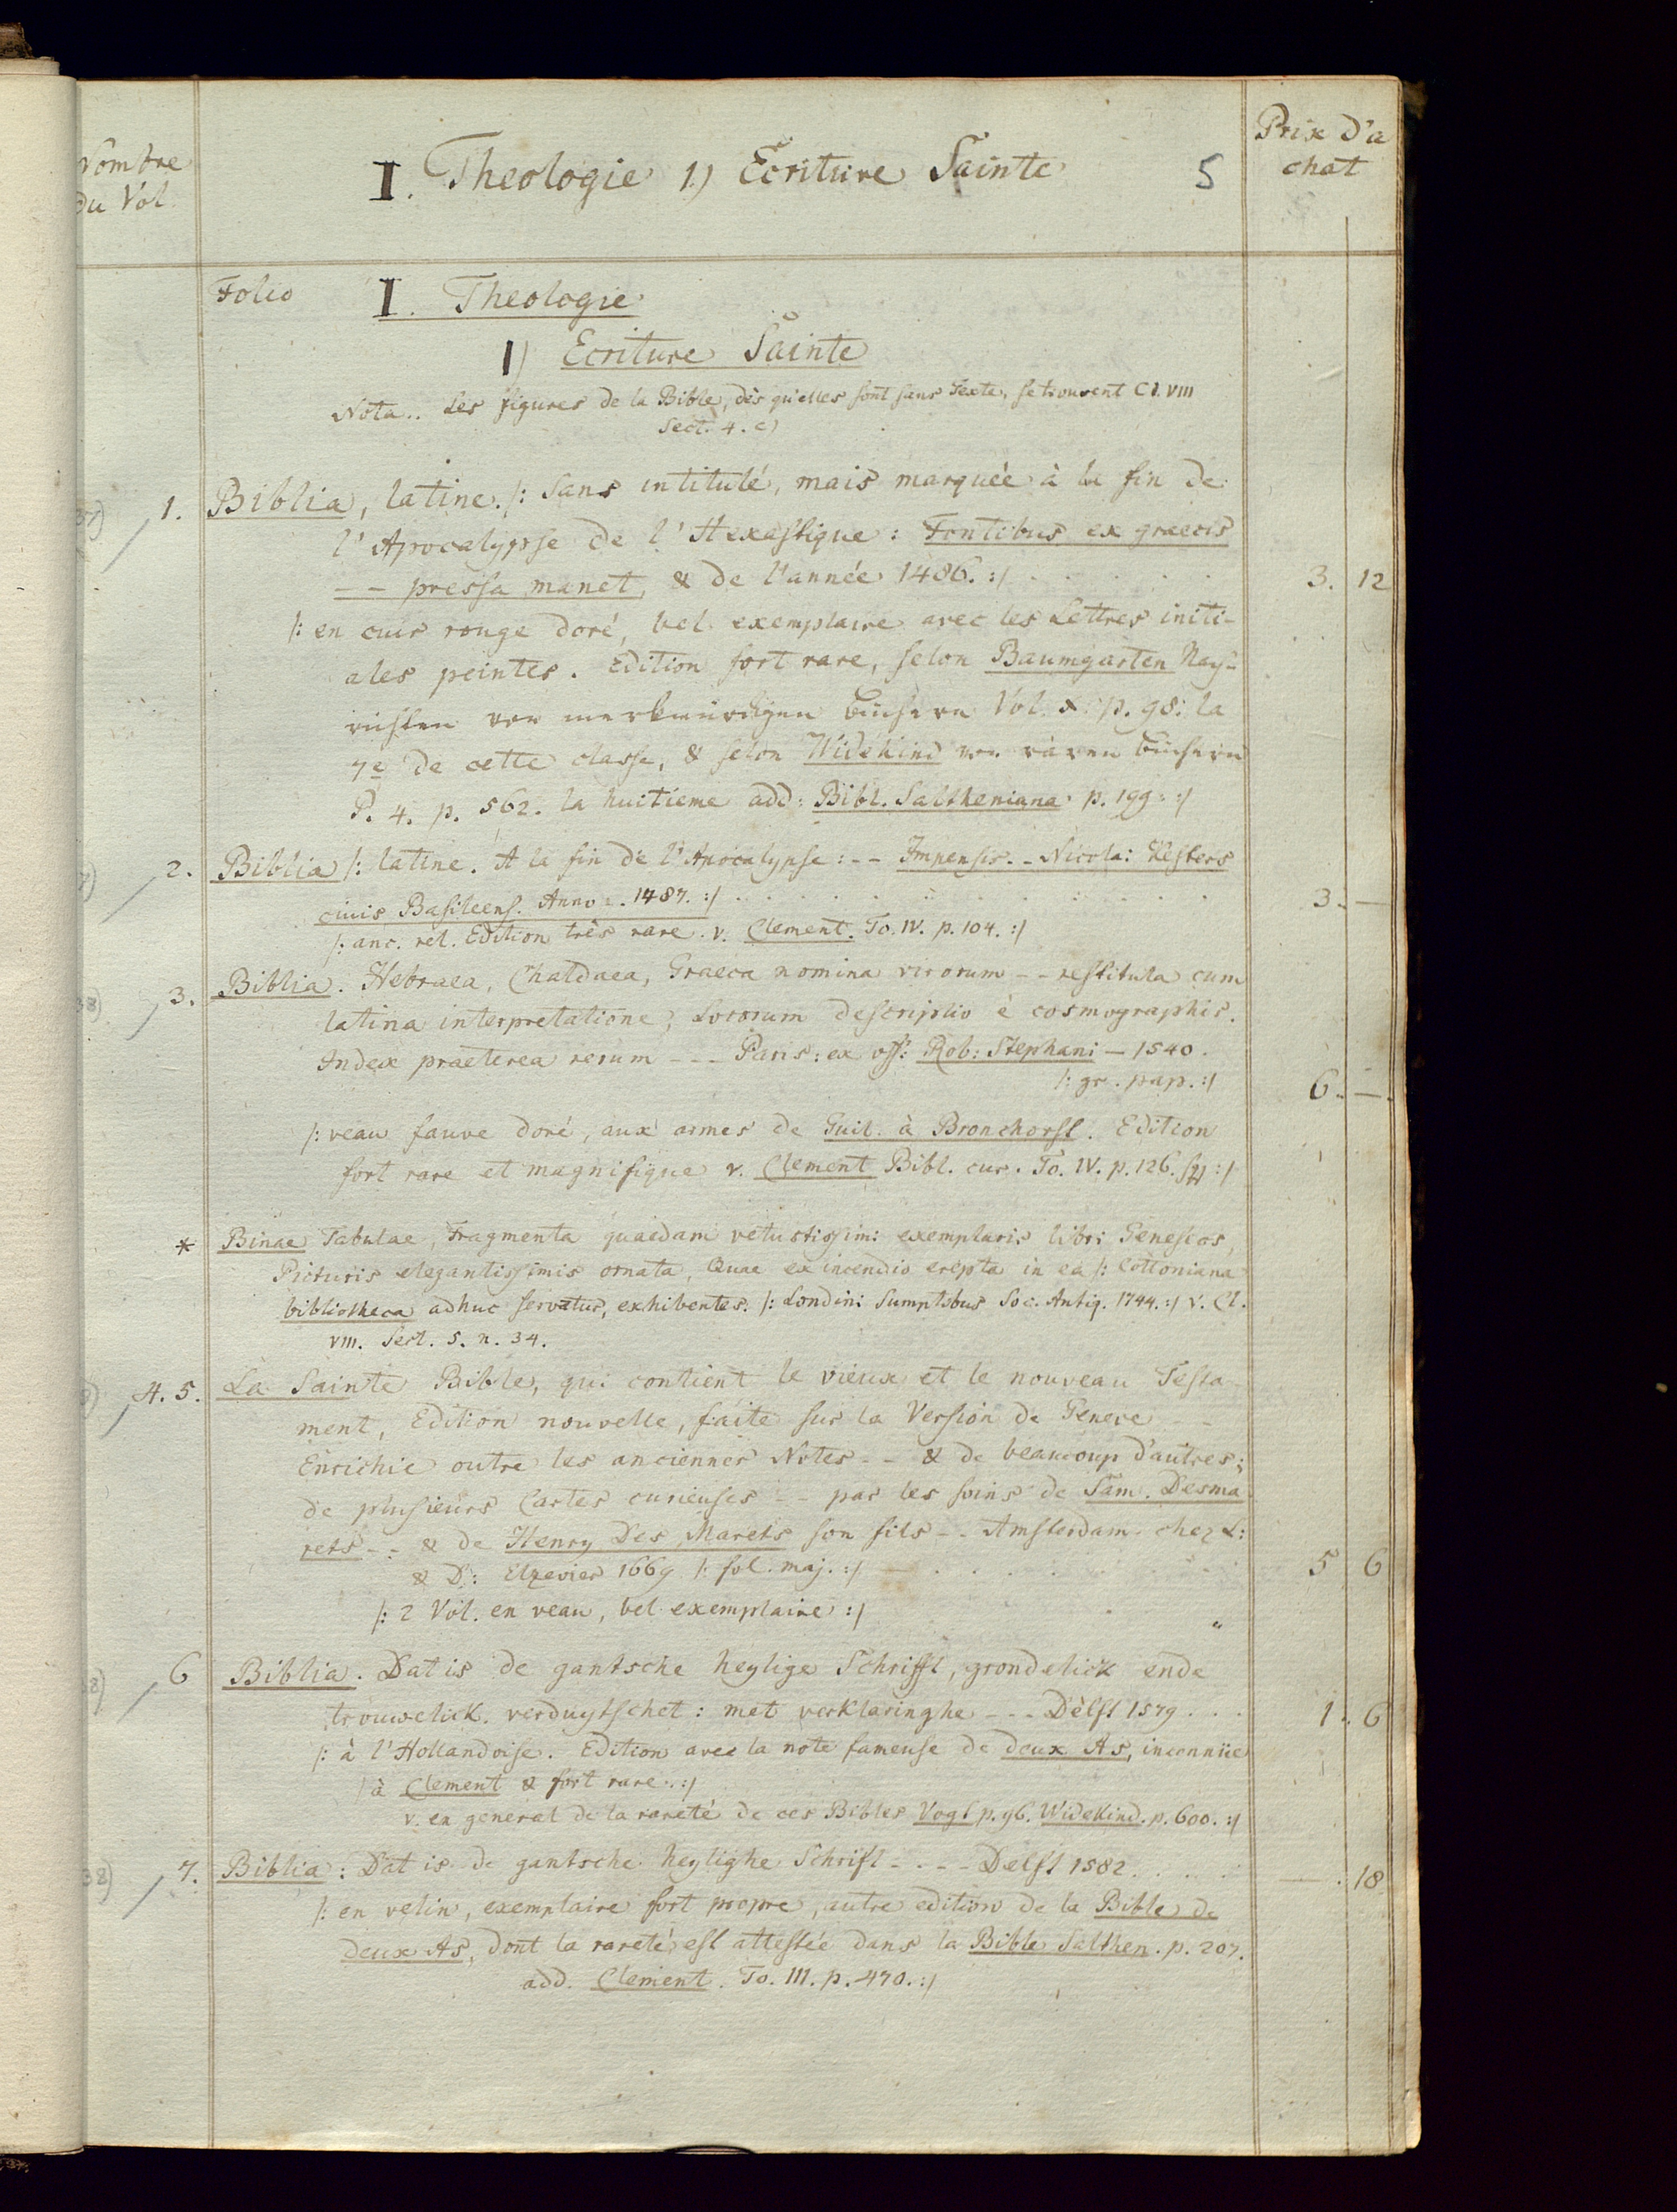 Nombre
du Vol.
I. Theologie 1.) Ecriture Sainte 5
Prix d'a
chat
Folio I. Theologie
1) Ecriture Sainte
Nota.. Les figures de la Bible, dès qu'elles sont sans Texte, se trouvent Cl. VIII
Sect. 4. c)
1. Biblia, latine. /: Sans intitulé, mais marquée à la fin de
l'Apocalypse de l'Hexastique: Fontibus ex graecis
-- pressa manet, & de l'année 1486. :/ . . . . . 3. 12
/: en cuir rouge doré, bel exemplaire avec les Lettres initi-
ales peintes. Edition fort rare, selon Baumgarten Nach-
richten von merkwürdigen Büchern Vol. X. p. 98. la
7e de cette classe, & selon Widekind von raren Büchern
P. 4. p. 562. la huitieme add: Bibl. Saltheniana p. 199. :/
2. Biblia /: latine. A la fin de l'Apocalypse: -- Impensis -- Nicolai Kesters
civis Basileens. Anno -. 1487. :/ . . . . . . . . . 3. —
/: anc. rel. Edition très rare. v. Clement. To. IV. p. 104. :/
3. Biblia. Hebraea, Chaldaea, Graeca nomina virorum -- restituta cum
latina interpretatione; Locorum descriptio è cosmographis.
Index praeterea rerum --- Paris: ex off: Rob: Stephani — 1540.
/: gr. pap. :/ 6. —.
/: veau fauve doré, aux armes de Guil. à Bronchorst. Edition
fort rare et magnifique v. Clement Bibl. cur. To. IV. p. 126. sq :/
* Binae Tabulae, Fragmenta quaedam vetustissimi exemplaris libri Geneseos,
Picturis elegantissimis ornata, Quae ex incendio erepta in ea /: Cottoniana
bibliotheca adhuc servatur, exhibentes. /: Londini Sumptibus Soc. Antiq. 1744. :/ v. Cl.
VIII. Sect. 5. n. 34.
4. 5. La Sainte Bible, qui contient le vieux et le nouveau Testa-
ment, Edition nouvelle, faite sur la Version de Geneve -
Enrichie outre les anciennes Notes -- & de beaucoup d'autres;
de plusieurs Cartes curieuses -- par les soins de Sam. Desma
rets -- & de Henry Des Marets son fils -- Amsterdam chez L:
& D: Elzevier 1669 /: fol. maj. :/ — . . . . . 5 6
/: 2 Vol. en veau, bel exemplaire :/
6 Biblia. Dat is de gantsche heylige Schrifft, grondelick ende
trouwelick verduytschet: met verklaringhe --- Delft 1579 . . . 1. 6
/: à l'Hollandoise. Edition avec la note fameuse de deux As, inconnüe
à Clement & fort rare. :/
v. en general de la rareté de ces Bibles Vogt p. 96. Widekind. p. 600. :/
7. Biblia: Dat is de gantsche heylighe Schrift - - - - Delft 1582. . . . . — . 18
/: en velin, exemplaire fort propre, autre edition de la Bible de
deux As, dont la rareté est attestée dans la Bible Salthen. p. 207.
add. Clement. To. III. p. 470. :/